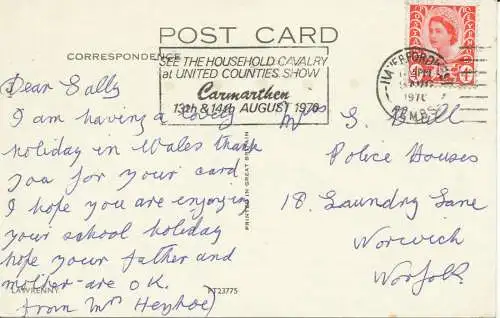 POST CARD
CORRESPONDENCE
SEE THE HOUSEHOLD CAVALRY
at UNITED COUNTIES SHOW
Carmarthen
13th & 14th AUGUST 1970
HAVERFORDWEST
1970
PEMBS
Dear Sally
I am having a lovely
holiday in Wales thank
you for your card
I hope you are enjoying
your school holiday
hope your father and
mother are O.K.
from Mrs Heyhoe
Miss S.
Police Houses
18, Laundry Lane
Norwich
Norfolk
PRINTED IN GREAT BRITAIN
LAWRENNY
PT23775